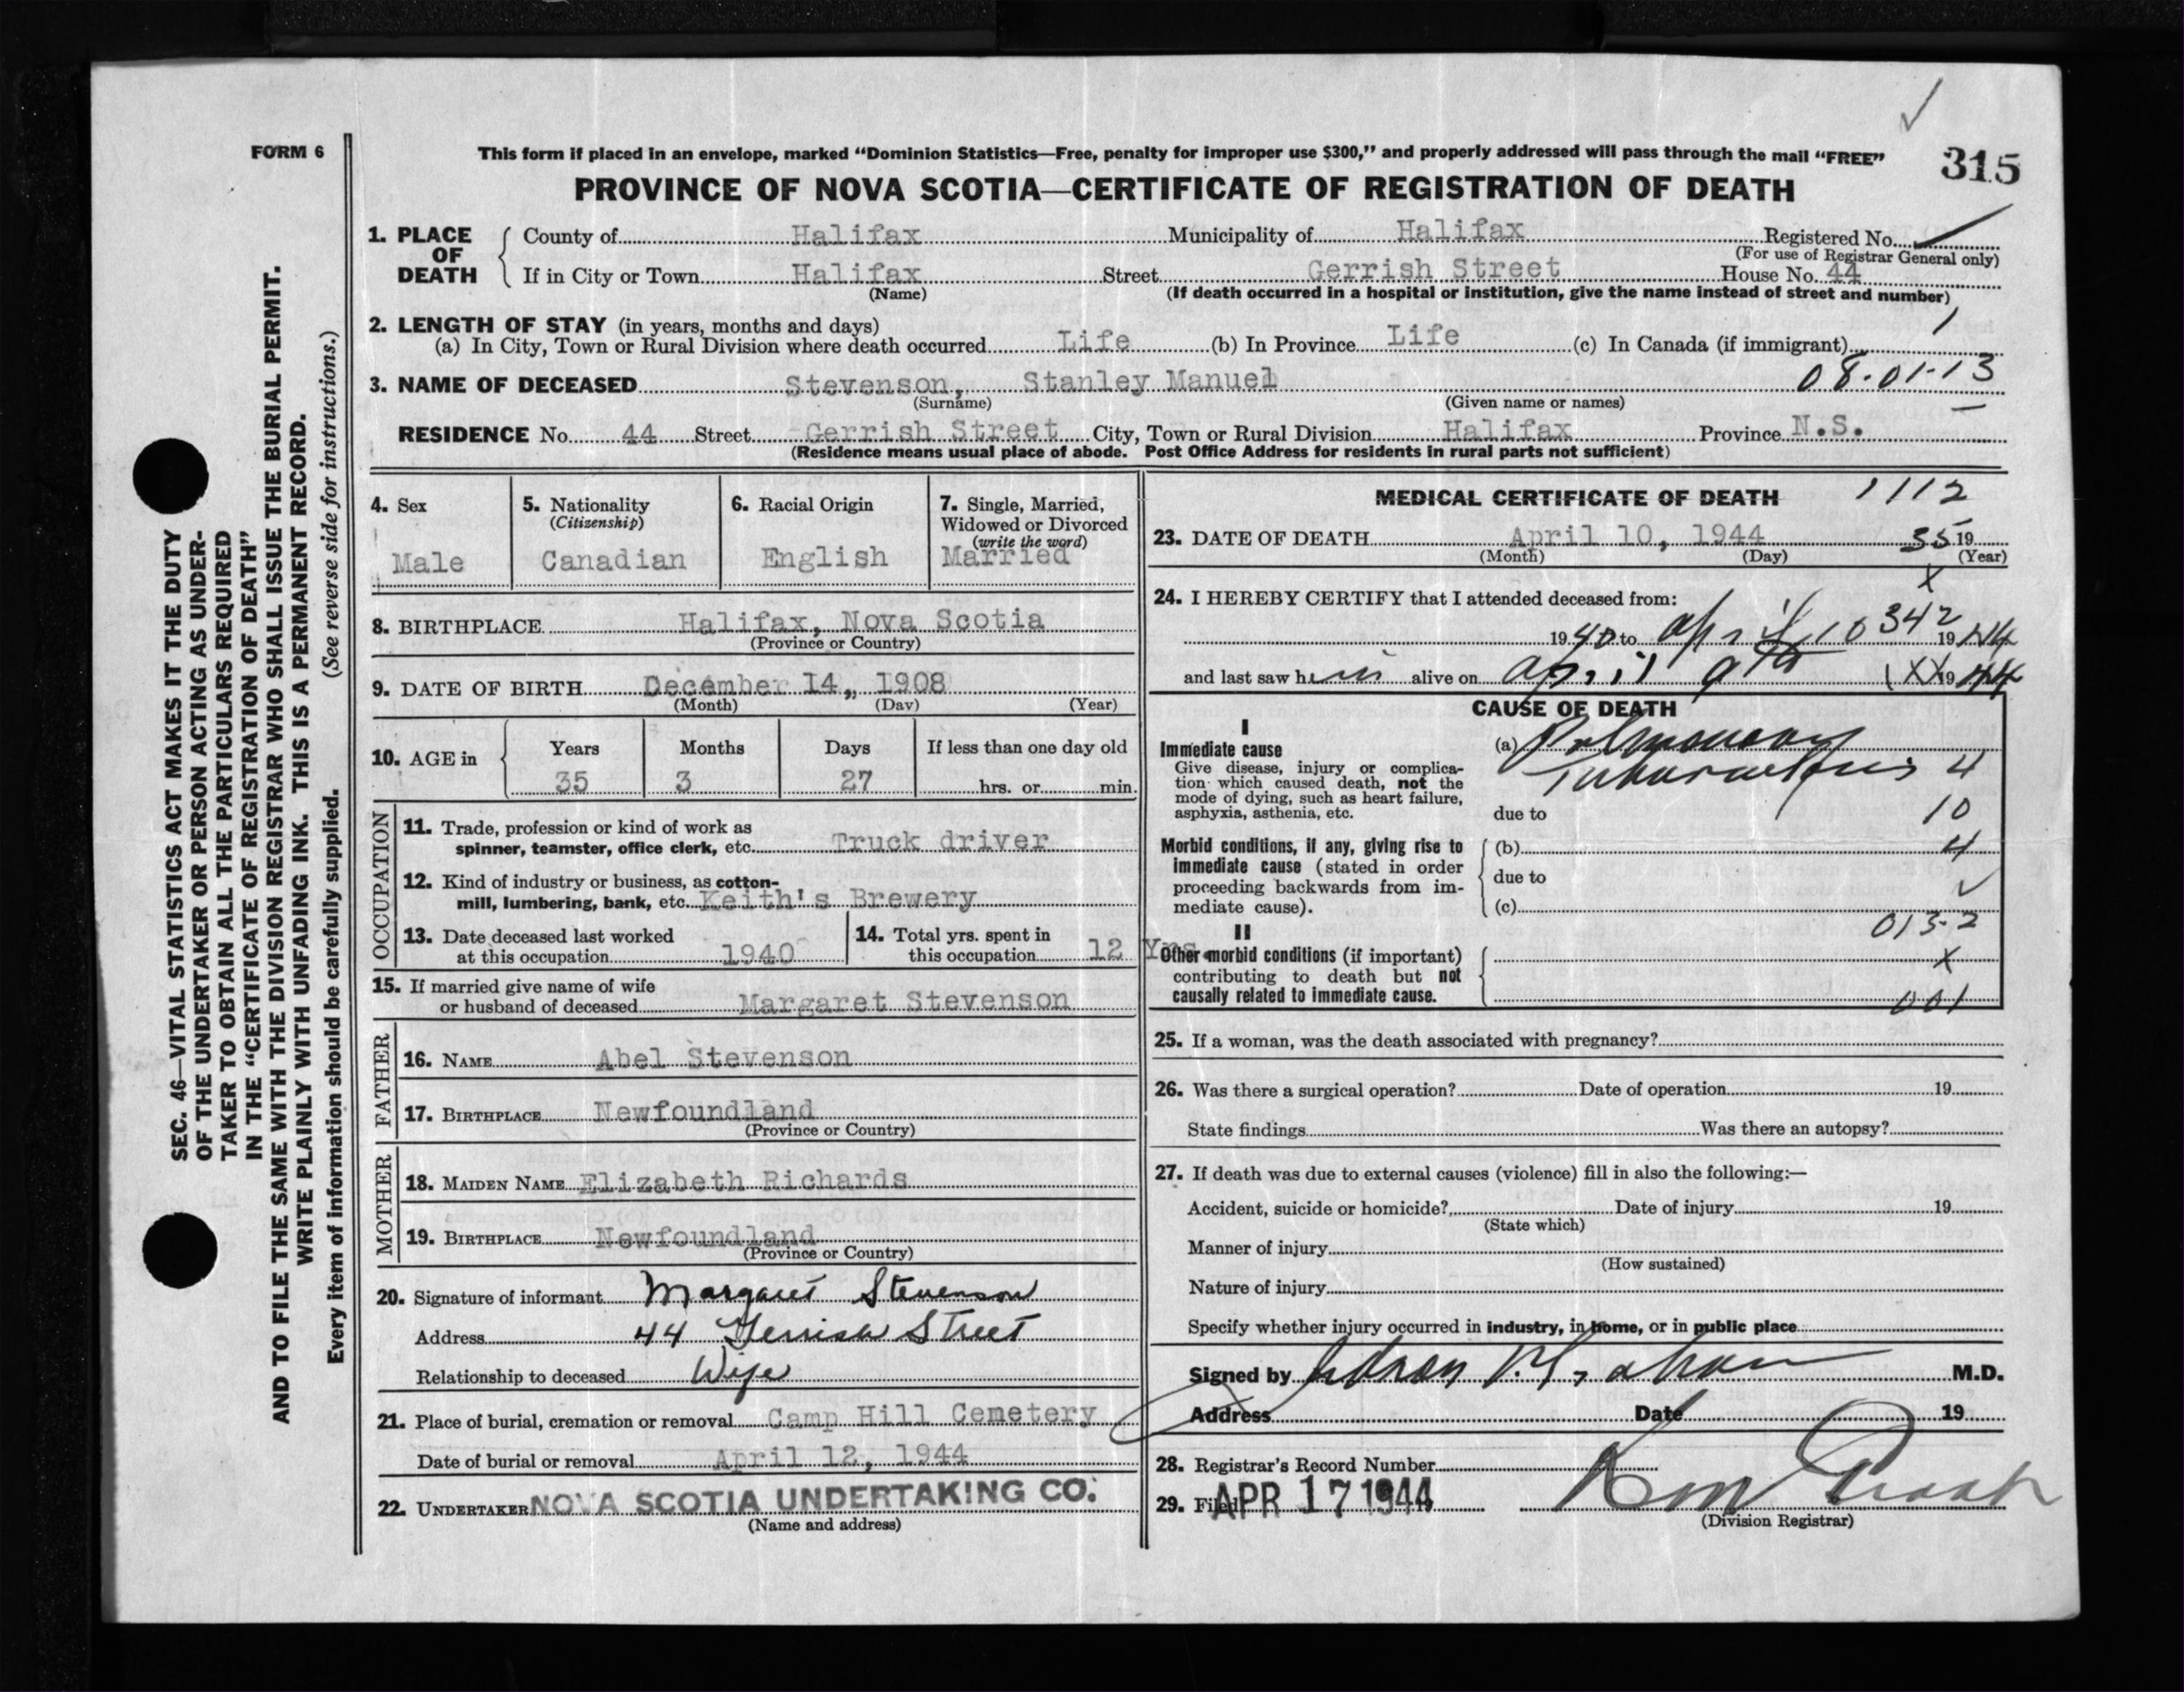 FORM 6
This form if placed in an envelope, marked “Dominion Statistics—Free, penalty for improper use $300,” and properly addressed will pass through the mail “FREE”
315
PROVINCE OF NOVA SCOTIA—CERTIFICATE OF REGISTRATION OF DEATH
1. PLACE OF DEATH
County of Halifax Municipality of Halifax Registered No.
(For use of Registrar General only)
If in City or Town Halifax Street Gerrish Street House No. 44
(Name) (If death occurred in a hospital or institution, give the name instead of street and number)
2. LENGTH OF STAY (in years, months and days) 1
(a) In City, Town or Rural Division where death occurred Life (b) In Province Life (c) In Canada (if immigrant)
3. NAME OF DECEASED Stevenson, Stanley Manuel 08-01-13
(Surname) (Given name or names)
RESIDENCE No. 44 Street Gerrish Street City, Town or Rural Division Halifax Province N.S.
(Residence means usual place of abode. Post Office Address for residents in rural parts not sufficient)
4. Sex
Male
5. Nationality
(Citizenship)
Canadian
6. Racial Origin
English
7. Single, Married,
Widowed or Divorced
(write the word)
Married
8. BIRTHPLACE Halifax, Nova Scotia
(Province or Country)
9. DATE OF BIRTH December 14,, 1908
(Month) (Day) (Year)
10. AGE in
Years Months Days If less than one day old
35 3 27 hrs. or min.
OCCUPATION
11. Trade, profession or kind of work as
spinner, teamster, office clerk, etc. Truck driver
12. Kind of industry or business, as cotton-
mill, lumbering, bank, etc. Keith's Brewery
13. Date deceased last worked
at this occupation 1940
14. Total yrs. spent in
this occupation 12 Yrs.
15. If married give name of wife
or husband of deceased Margaret Stevenson
FATHER
16. NAME Abel Stevenson
17. BIRTHPLACE Newfoundland
(Province or Country)
MOTHER
18. MAIDEN NAME Elizabeth Richards
19. BIRTHPLACE Newfoundland
(Province or Country)
20. Signature of informant Margaret Stevenson
Address 44 Gerrish Street
Relationship to deceased Wife
21. Place of burial, cremation or removal Camp Hill Cemetery
Date of burial or removal April 12, 1944
22. UNDERTAKER NOVA SCOTIA UNDERTAKING CO.
(Name and address)
MEDICAL CERTIFICATE OF DEATH 1112
23. DATE OF DEATH April 10, 1944 35 19
(Month) (Day) (Year)
X
24. I HEREBY CERTIFY that I attended deceased from:
1940 to April 10 342 1944
and last saw him alive on april 9th 1XX 1944
CAUSE OF DEATH
I
Immediate cause
Give disease, injury or complica-
tion which caused death, not the
mode of dying, such as heart failure,
asphyxia, asthenia, etc.
(a) Pulmonary
Tuberculosis 4
due to 10
Morbid conditions, if any, giving rise to
immediate cause (stated in order
proceeding backwards from im-
mediate cause).
(b) 4
due to
(c)
013-2
II
Other morbid conditions (if important)
contributing to death but not
causally related to immediate cause.
X
001
25. If a woman, was the death associated with pregnancy?
26. Was there a surgical operation? Date of operation 19
State findings Was there an autopsy?
27. If death was due to external causes (violence) fill in also the following:—
Accident, suicide or homicide? Date of injury 19
(State which)
Manner of injury
(How sustained)
Nature of injury
Specify whether injury occurred in industry, in home, or in public place
Signed by M.D.
Address Date 19
28. Registrar's Record Number
29. Filed APR 17 1944
(Division Registrar)
SEC. 46—VITAL STATISTICS ACT MAKES IT THE DUTY
OF THE UNDERTAKER OR PERSON ACTING AS UNDER-
TAKER TO OBTAIN ALL THE PARTICULARS REQUIRED
IN THE “CERTIFICATE OF REGISTRATION OF DEATH”
AND TO FILE THE SAME WITH THE DIVISION REGISTRAR WHO SHALL ISSUE THE BURIAL PERMIT.
WRITE PLAINLY WITH UNFADING INK. THIS IS A PERMANENT RECORD.
Every item of information should be carefully supplied. (See reverse side for instructions.)